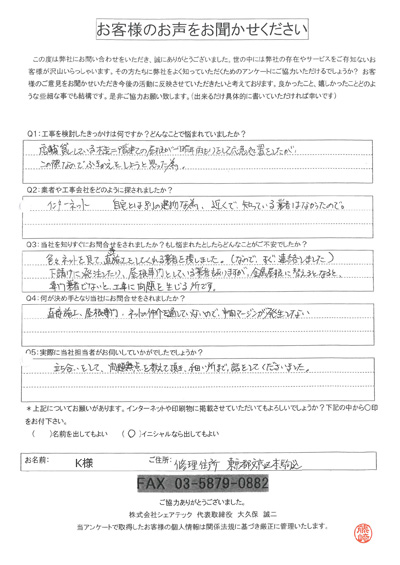 お客様のお声をお聞かせください
この度は弊社にお問い合わせをいただき、誠にありがとうございました。世の中には弊社の存在やサービスをご存知ないお
客様が沢山いらっしゃいます。その方たちに弊社をよく知っていただくためのアンケートにご協力いただけるでしょうか？ お客
様のご意見をお聞かせいただき今後の活動に反映させていただきたいと考えております。良かったこと、嬉しかったことどのよ
うな些細な事でも結構です。是非ご協力お願い致します。（出来るだけ具体的に書いていただければ幸いです）
Q1:工事を検討したきっかけは何ですか？どんなことで悩まれていましたか？
この際なのでふきかえをしようと思った為。
Q2:業者や工事会社をどのように探されましたか？
インターネット 自宅とは別の場所な為、近くで、知っている業者はなかったので。
Q3:当社を知りすぐにお問合せをされましたか？もし悩まれたとしたらどんなことがご不安でしたか？
色々ネットを見て、直施工としてくれる業者を探しました。（なので、すぐ連絡しました）
専門業者でないと、工事に問題を生じる所です。
Q4:何が決め手となり当社にお問合せをされましたか？
直施工、屋根専門、ネットの仲介を通していないので、中間マージンが発生しない
Q5:実際に当社担当者がお伺いしていかがでしたでしょうか？
立ち合いをして、問題点を教えて頂き、細い所まで、話をしてくださいました。
＊上記についてお願いがあります。インターネットや印刷物に掲載させていただいてもよろしいでしょうか？下記の中から○印
をお付下さい。
（　）名前を出してもよい （○）イニシャルなら出してもよい
お名前: K様 ご住所: 修理住所 東京都
FAX 03-5879-0882
ご協力ありがとうございました。
株式会社シェアテック 代表取締役 大久保 誠二
当アンケートで取得したお客様の個人情報は関係法規に基づき厳正に管理いたします。